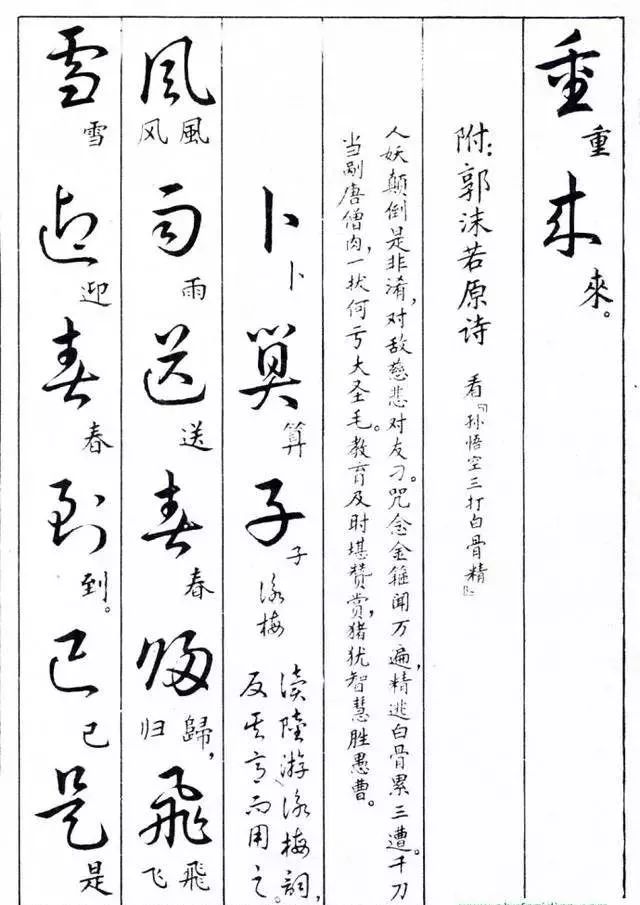 重重来來。
附：郭沫若原诗 看《孙悟空三打白骨精》
人妖颠倒是非淆，对敌慈悲对友刁。咒念金箍闻万遍，精逃白骨累三遭。千刀
当剐唐僧肉，一拔何亏大圣毛。教育及时堪赞赏，猪犹智慧胜愚曹。
卜卜算算子子咏梅
读陸游咏梅詞，
反其意而用之。
風風风雨雨送送春春歸歸，归飛飛飞
雪雪迎迎春春到到。已已是是